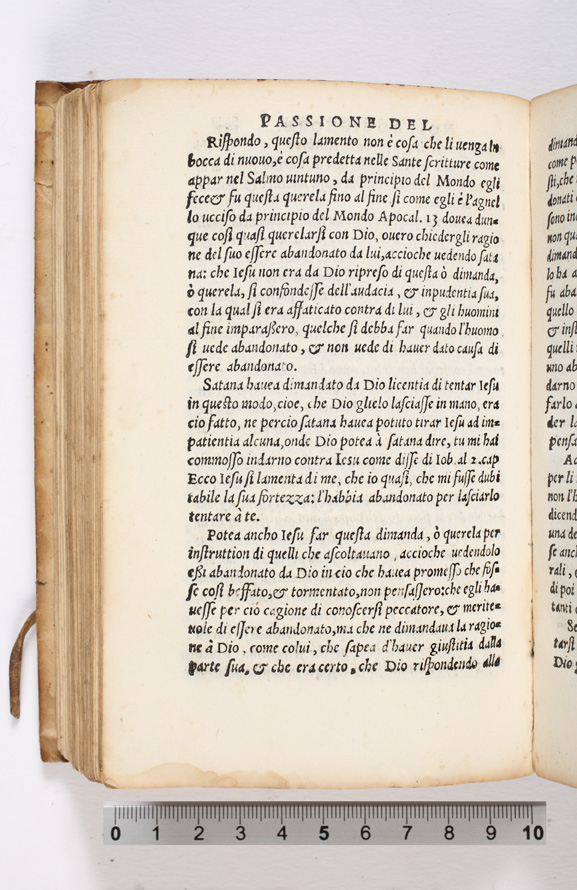 PASSIONE DEL
Rispondo, questo lamento non è cosa che li uenga in
bocca di nuouo, è cosa predetta nelle Sante scritture come
appar nel Salmo uintuno, da principio del Mondo egli
fece & fu questa querela fino al fine si come egli è l'agnel
lo ucciso da principio del Mondo Apocal. 13 douea dun=
que così quasi querelarsi con Dio, ouero chiedergli ragio
ne del suo essere abandonato da lui, accioche uedendo sata
na: che Iesu non era da Dio ripreso di questa ò dimanda,
ò querela, si confondesse dell'audacia, & inpudentia sua,
con la qual si era affaticato contra di lui, & gli huomini
al fine imparaßero, quelche si debba far quando l'huomo
si uede abandonato, & non uede di hauer dato causa di
essere abandonato.
Satana hauea dimandato da Dio licentia di tentar Iesu
in questo modo, cioe, che Dio glielo lasciasse in mano, era
cio fatto, ne percio satana hauea potuto tirar Iesu ad im=
patientia alcuna, onde Dio potea à satana dire, tu mi hai
commosso indarno contra Iesu come disse di Iob. al 2. cap
Ecco Iesu si lamenta di me, che io quasi, che mi fusse dubi
tabile la sua fortezza: l'habbia abandonato per lasciarlo
tentare à te.
Potea ancho Iesu far questa dimanda, ò querela per
instruttion di quelli che ascoltauano, accioche uedendolo
eßi abandonato da Dio in cio che hauea promesso che fos=
se così beffato, & tormentato, non pensassero: che egli ha=
uesse per ciò cagione di conoscersi peccatore, & merite=
uole di essere abandonato, ma che ne dimandaua la ragio=
ne à Dio, come colui, che sapea d'hauer giustitia dalla
parte sua, & che era certo, che Dio rispondendo alla
0 1 2 3 4 5 6 7 8 9 10